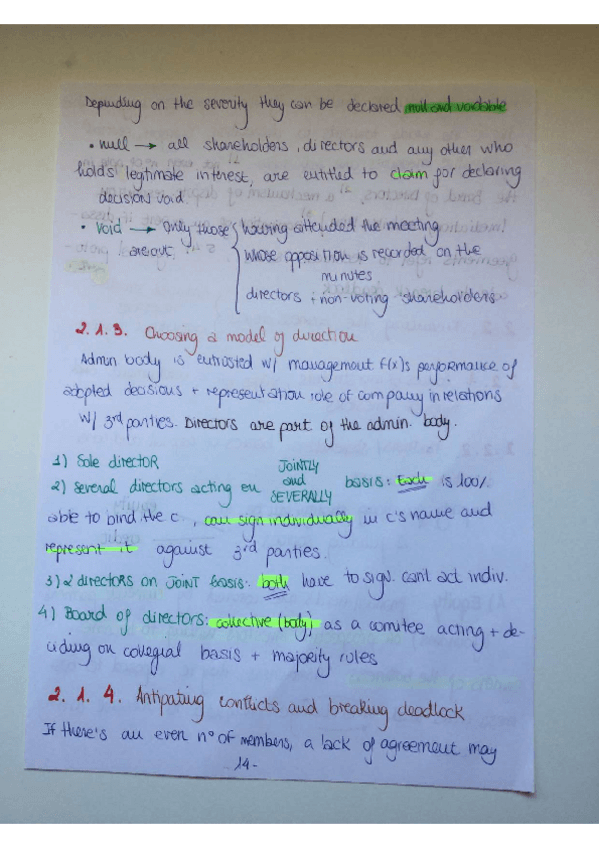 Depending on the severity they can be declared null and voidable
• null → all shareholders, directors and any other who
holds legitimate interest, are entitled to claim for declaring
decision void
• void → only those { having attended the meeting
whose opposition is recorded on the
minutes
directors + non-voting shareholders
2.1.3. Choosing a model of direction
Admin body is entrusted w/ management f(x)s performance of
adopted decisions + representation role of company in relations
w/ 3rd parties. Directors are part of the admin. body.
1) Sole director
2) Several directors acting on JOINTLY and SEVERALLY basis: Each is 100%
able to bind the c., can sign individually in c's name and
represent it against 3rd parties.
3) 2 directors on JOINT basis: both have to sign. cant act indiv.
4) Board of directors: collective (body) as a comitee acting + de-
ciding on collegial basis + majority rules
2.1.4. Antipating conflicts and breaking deadlock
If there's an even nº of members, a lack of agreement may
14-